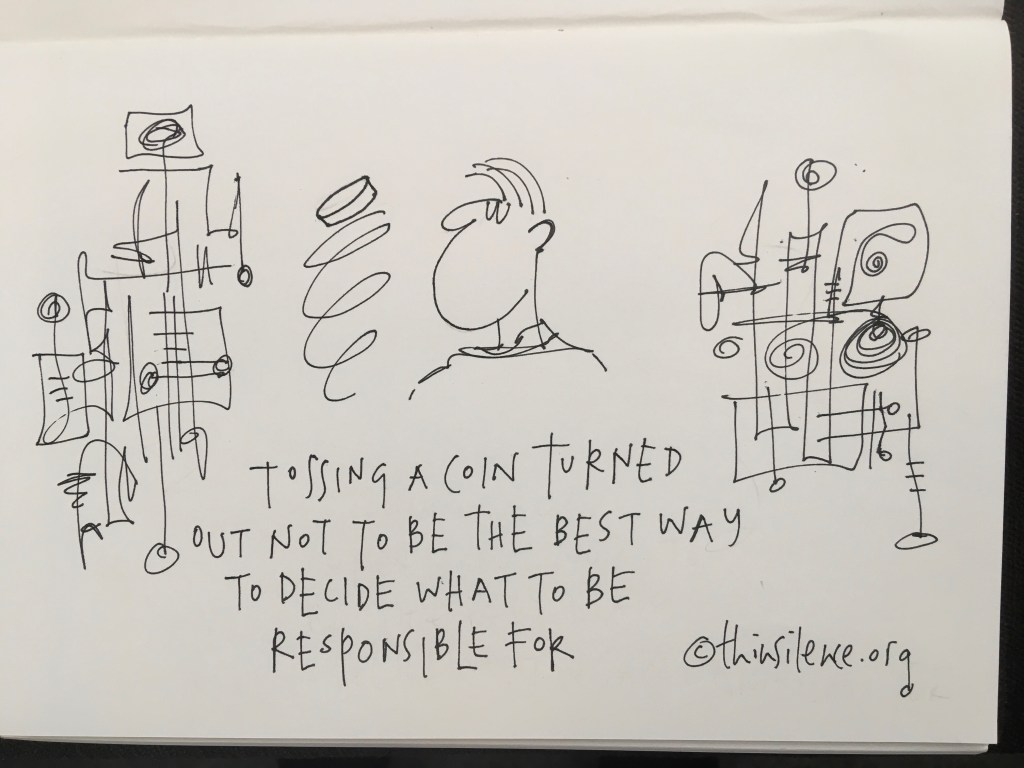 TOSSING A COIN TURNED
OUT NOT TO BE THE BEST WAY
TO DECIDE WHAT TO BE
RESPONSIBLE FOR
©thinsilence.org